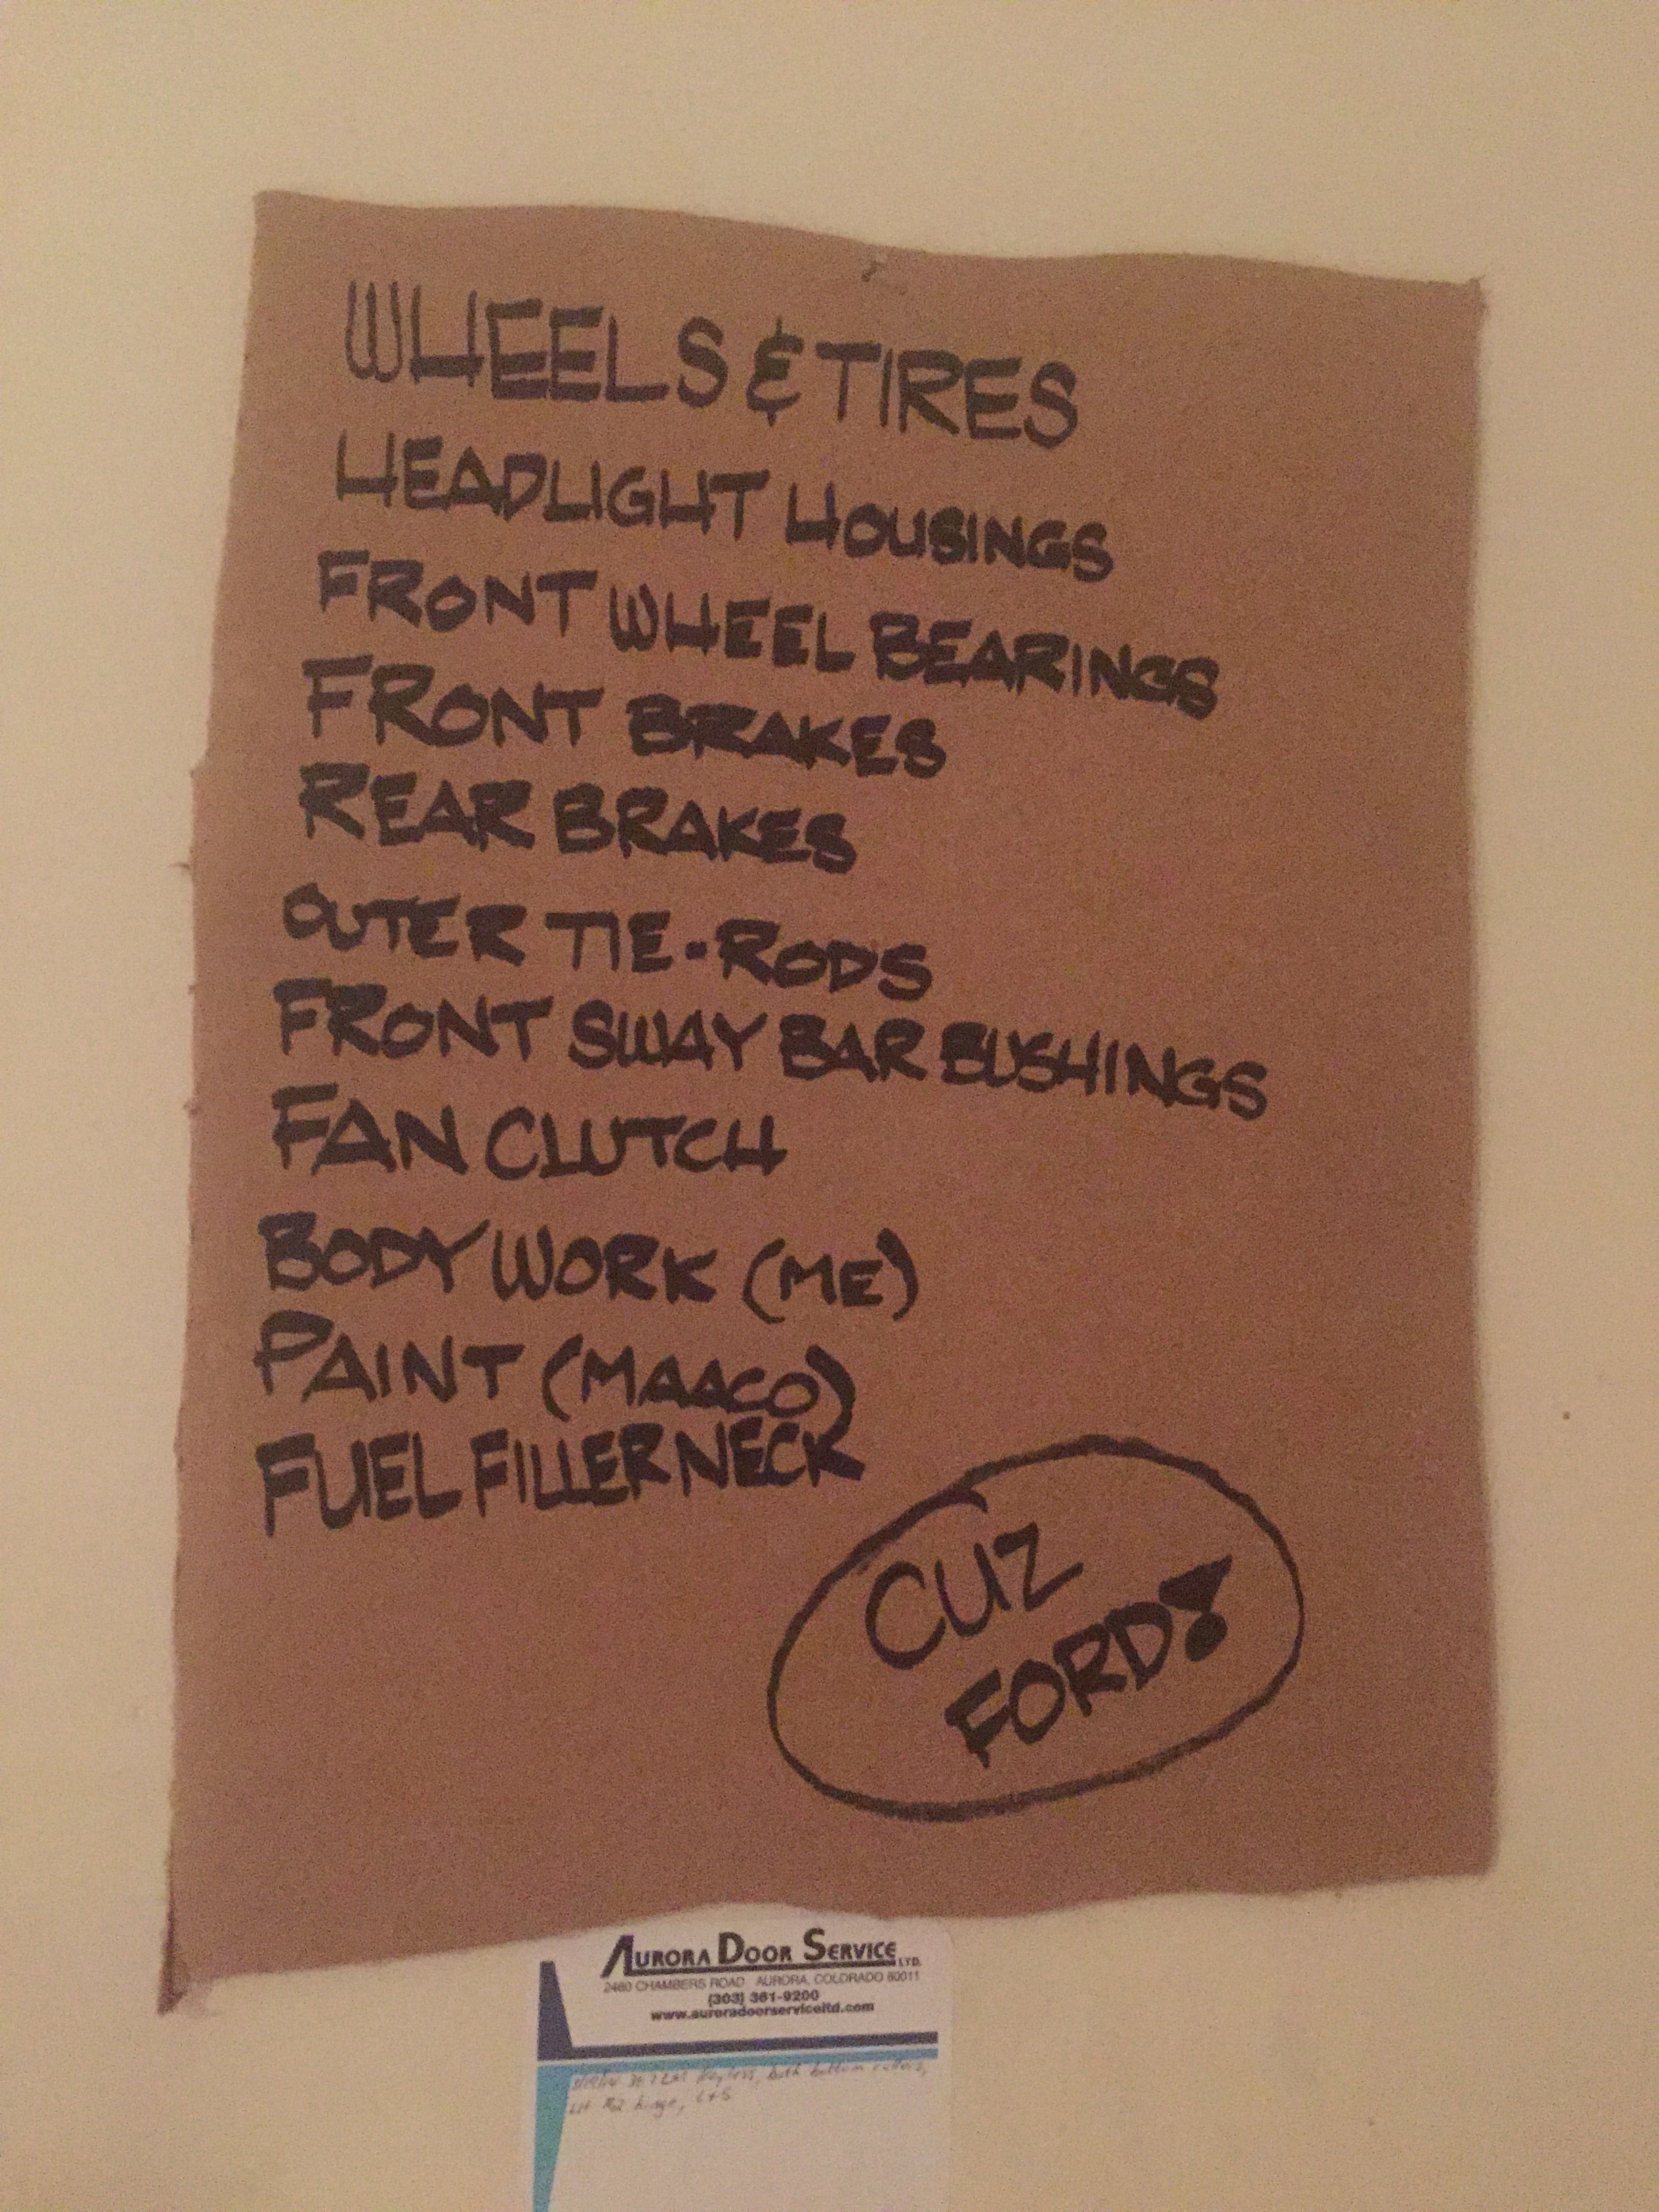 WHEELS & TIRES
HEADLIGHT HOUSINGS
FRONT WHEEL BEARINGS
FRONT BRAKES
REAR BRAKES
OUTER TIE-RODS
FRONT SWAY BAR BUSHINGS
FAN CLUTCH
BODY WORK (ME)
PAINT (MAACO)
FUEL FILLER NECK
CUZ
FORD!
AURORA DOOR SERVICE LTD.
2480 CHAMBERS ROAD AURORA, COLORADO 80011
(303) 361-9200
www.auroradoorserviceltd.com
keyless, both bottom rollers,
#2 hinge,